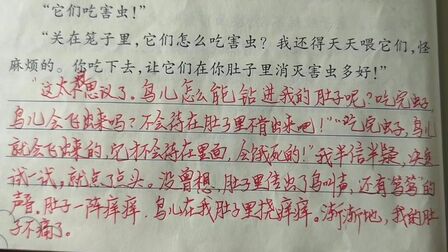 “它们吃害虫！”
“关在笼子里，它们怎么吃害虫？我还得天天喂它们，怪
麻烦的。你吃下去，让它们在你肚子里消灭害虫多好！”
“这太不思议了。鸟儿怎么能钻进我的肚子呢？吃完虫子
鸟儿会飞出来吗？不会待在肚子里不肯出来吧！”“吃完虫子，鸟儿
就会飞出来的，它才不会待在里面，会饿死的！”我半信半疑，决定
试一试，就点了点头。没曾想，肚子里传出了鸟叫声，还有“笃笃”的
声音。肚子一阵痒痒，鸟儿在我肚子里挠痒痒。渐渐地，我的肚
子不痛了。